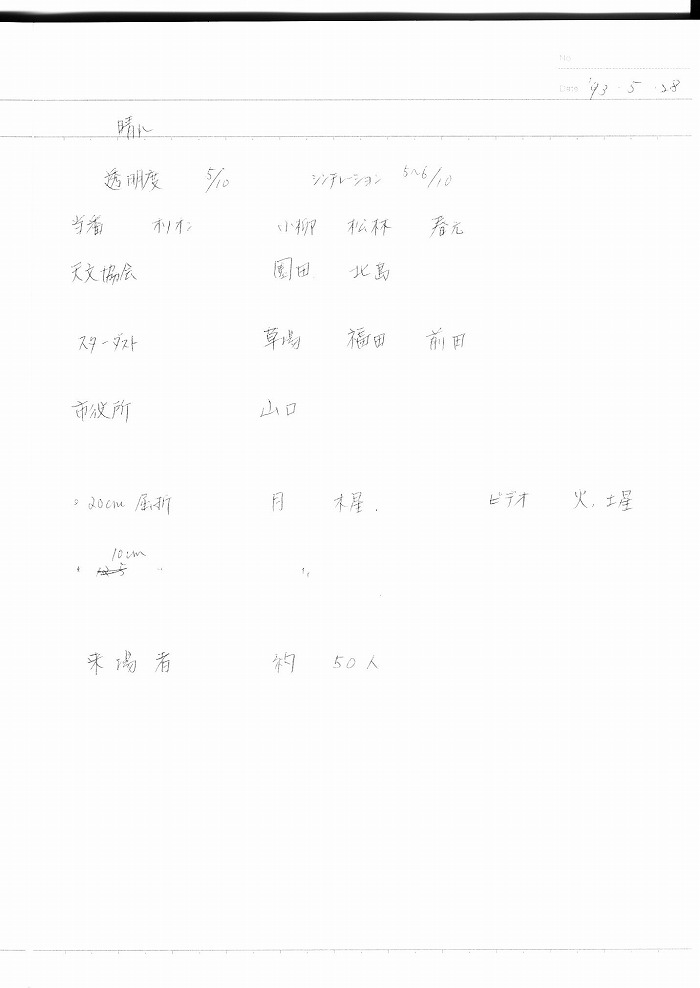 No.
Date '93・5・28
晴れ
透明度 5/10 シンチレーション 5~6/10
当番 オリオン 小柳 松林 春元
天文協会 園田 北島
スターダスト 草場 福田 前田
市役所 山口
。20cm 屈折 月 木星. ビデオ 火,土星
10cm
・ 〃 〃
来場者 約 50人